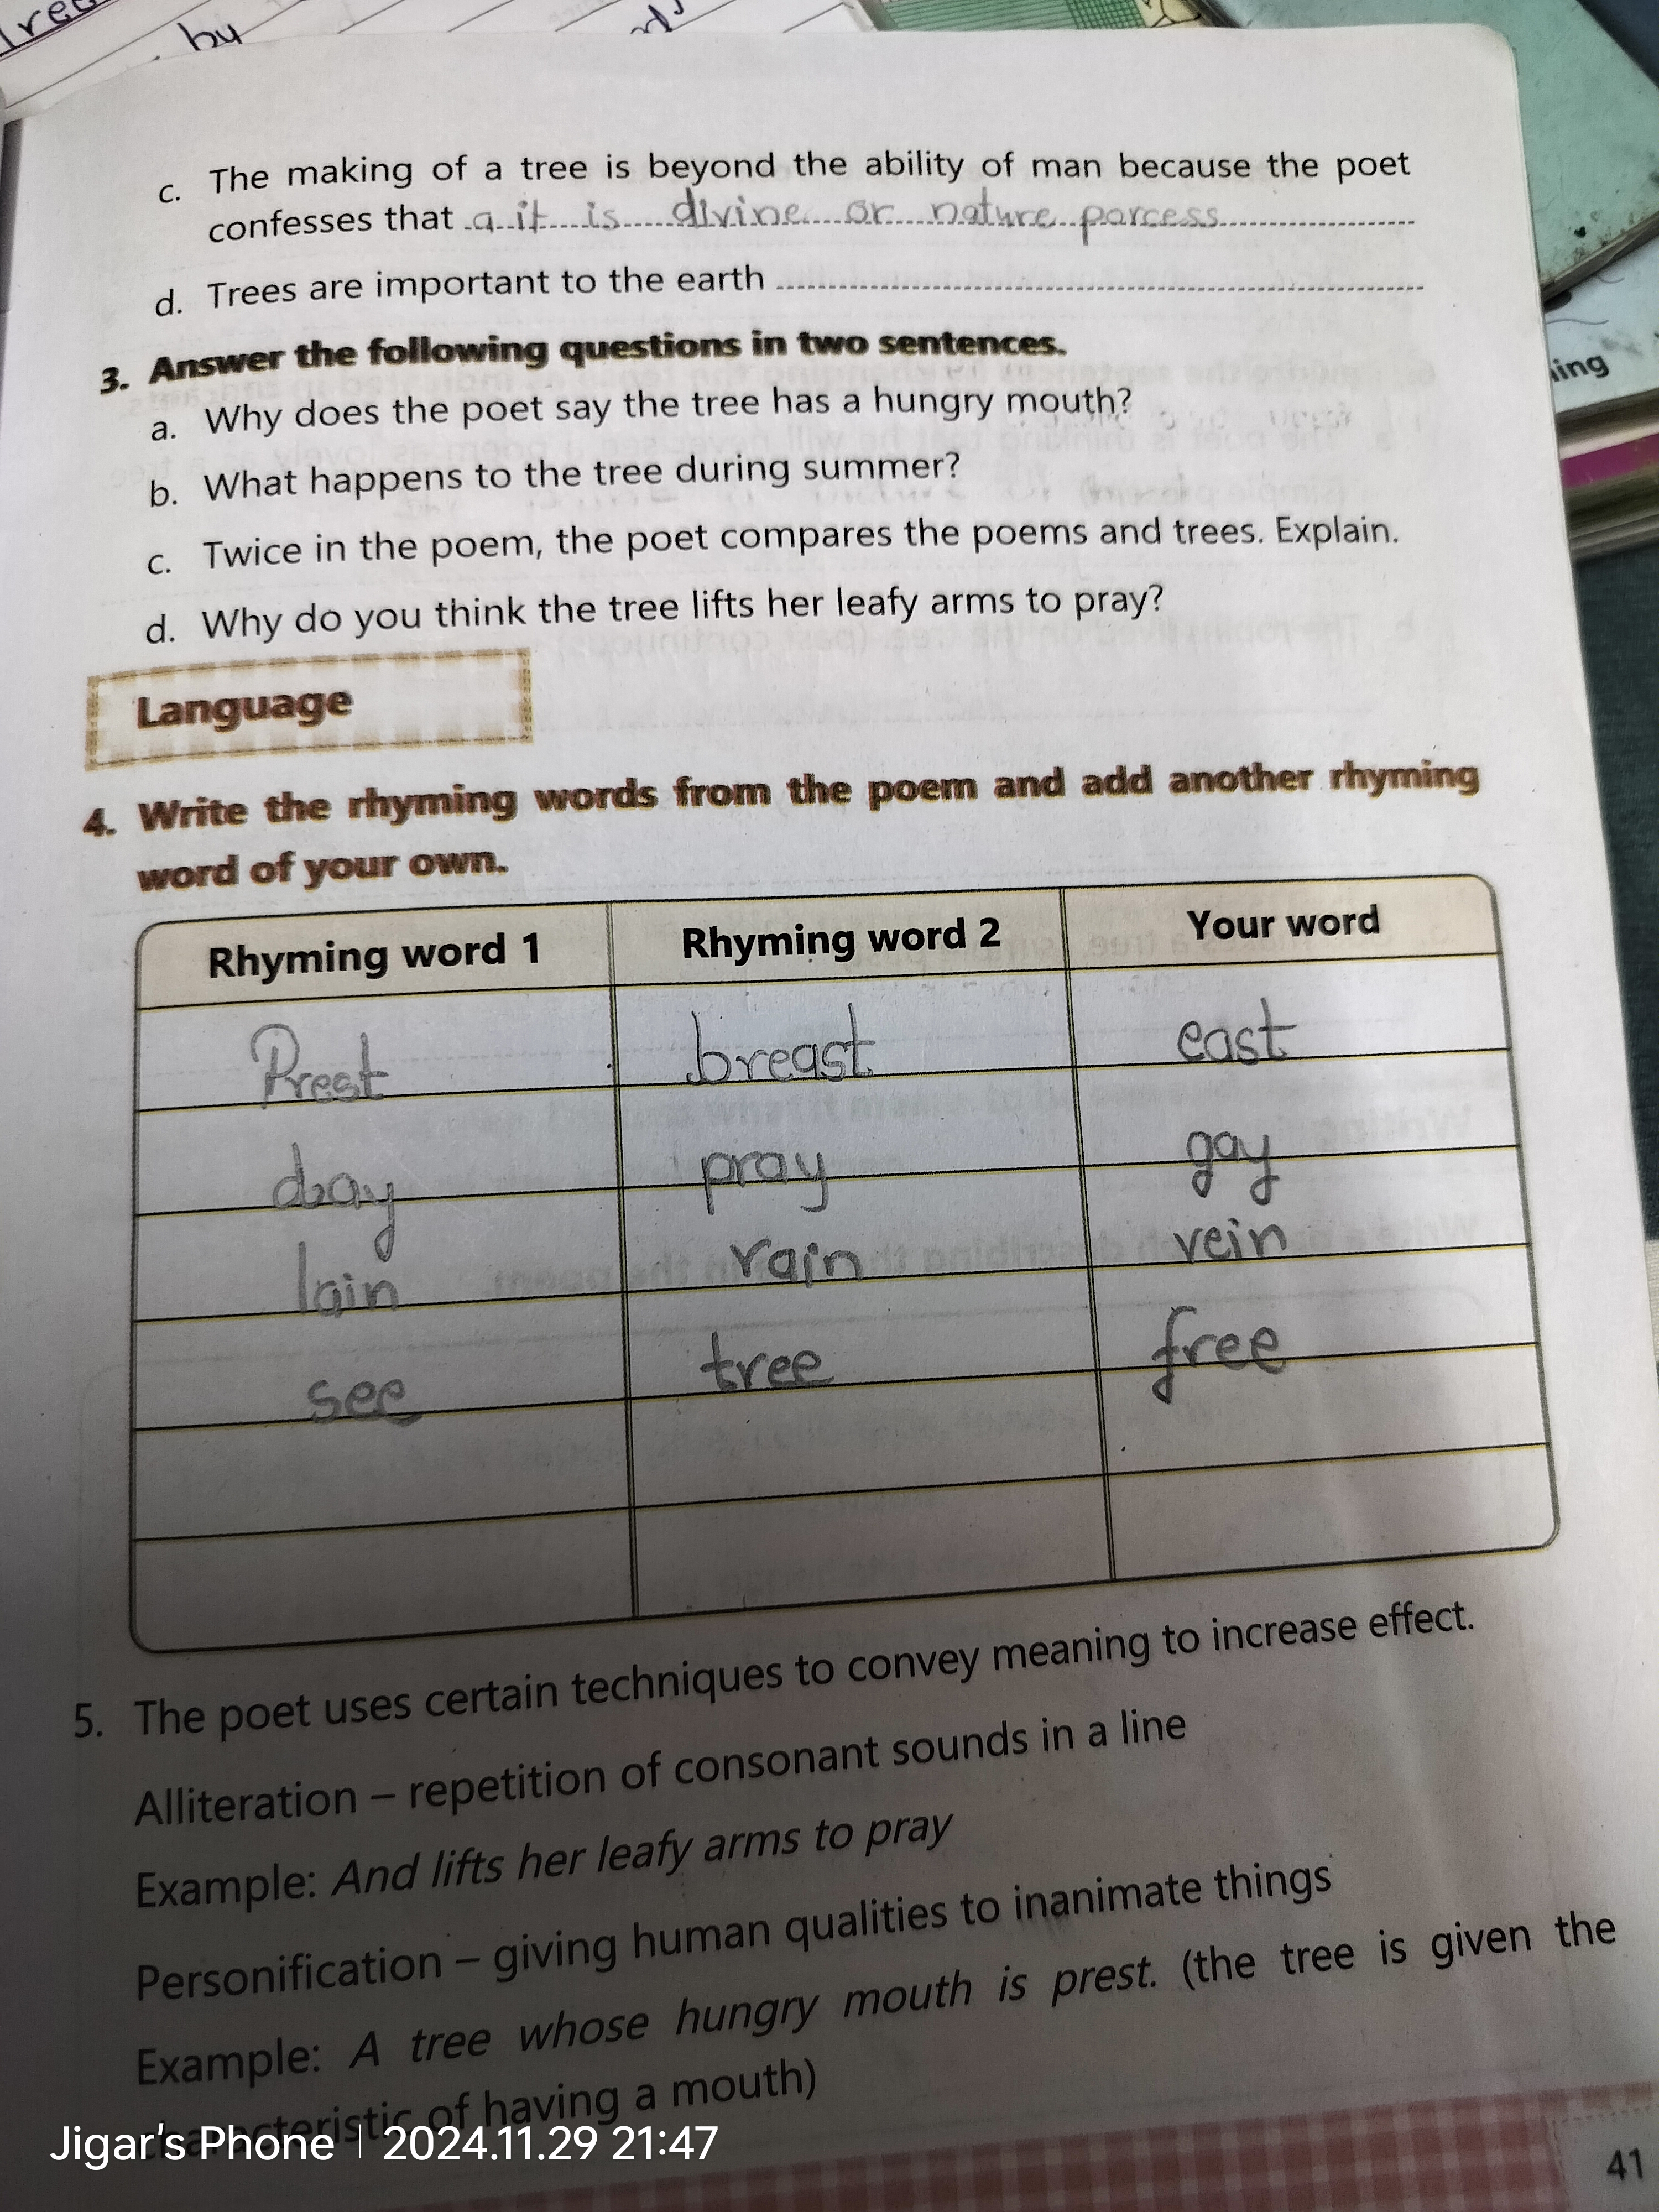 by
c. The making of a tree is beyond the ability of man because the poet
confesses that a it is divine or nature parcess
d. Trees are important to the earth
ing
3. Answer the following questions in two sentences.
a. Why does the poet say the tree has a hungry mouth?
b. What happens to the tree during summer?
c. Twice in the poem, the poet compares the poems and trees. Explain.
d. Why do you think the tree lifts her leafy arms to pray?
Language
4. Write the rhyming words from the poem and add another rhyming
word of your own.
Rhyming word 1 Rhyming word 2 Your word
Prest breast east
day pray gay
lain rain vein
see tree free
5. The poet uses certain techniques to convey meaning to increase effect.
Alliteration – repetition of consonant sounds in a line
Example: And lifts her leafy arms to pray
Personification – giving human qualities to inanimate things
Example: A tree whose hungry mouth is prest. (the tree is given the
characteristic of having a mouth)
Jigar's Phone | 2024.11.29 21:47
41